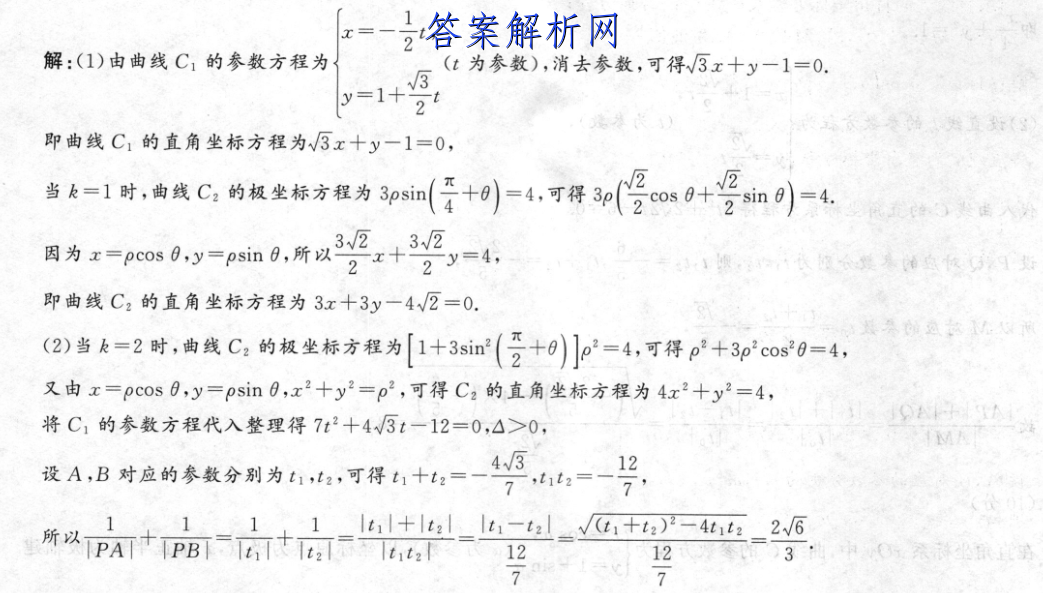 答案解析网
解:(1)由曲线 C₁ 的参数方程为{x=-1/2 t, y=1+√3/2 t (t 为参数),消去参数,可得√3x+y-1=0.
即曲线 C₁ 的直角坐标方程为√3x+y-1=0,
当 k=1 时,曲线 C₂ 的极坐标方程为 3ρsin(π/4+θ)=4,可得 3ρ(√2/2 cos θ+√2/2 sin θ)=4.
因为 x=ρcos θ,y=ρsin θ,所以 3√2/2 x+3√2/2 y=4,
即曲线 C₂ 的直角坐标方程为 3x+3y-4√2=0.
(2)当 k=2 时,曲线 C₂ 的极坐标方程为[1+3sin²(π/2+θ)]ρ²=4,可得 ρ²+3ρ²cos²θ=4,
又由 x=ρcos θ,y=ρsin θ,x²+y²=ρ²,可得 C₂ 的直角坐标方程为 4x²+y²=4,
将 C₁ 的参数方程代入整理得 7t²+4√3t-12=0,Δ>0,
设 A,B 对应的参数分别为 t₁,t₂,可得 t₁+t₂=-4√3/7,t₁t₂=-12/7,
所以 1/|PA|+1/|PB|=1/|t₁|+1/|t₂|=(|t₁|+|t₂|)/|t₁t₂|=|t₁-t₂|/(12/7)=√((t₁+t₂)²-4t₁t₂)/(12/7)=2√6/3